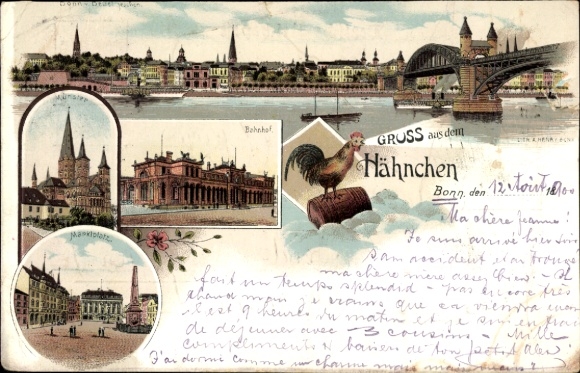 Bonn v. Beuel gesehen
Münster
Bahnhof.
Marktplatz
GRUSS aus dem
Hähnchen
Bonn, den 12 Août 1900
Ma chère Jeanne!
Je suis arrivé hier soir
sans accident et ai trouvé
ma chère mère assez bien
fait un temps splendid - pas encore très
chaud mais je crains que ça viendra
est 9 heures du matin et je suis en train
de déjeuner avec 3 cousins - Mille
compliments & baisers de ton
J'ai dormi comme un